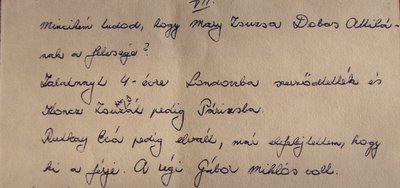 VII.
Mincikém tudod, hogy Mary Zsuzsa Dobos Attilá-
nak a felesége?
Zalatnayt 4-évre Londonba szerződtették és
Koncz Zsuzsát pedig Párizsba.
Ruttkay Éva pedig elvált, már elfelejtettem, hogy
ki a férje. A régi Gábor Miklós volt.